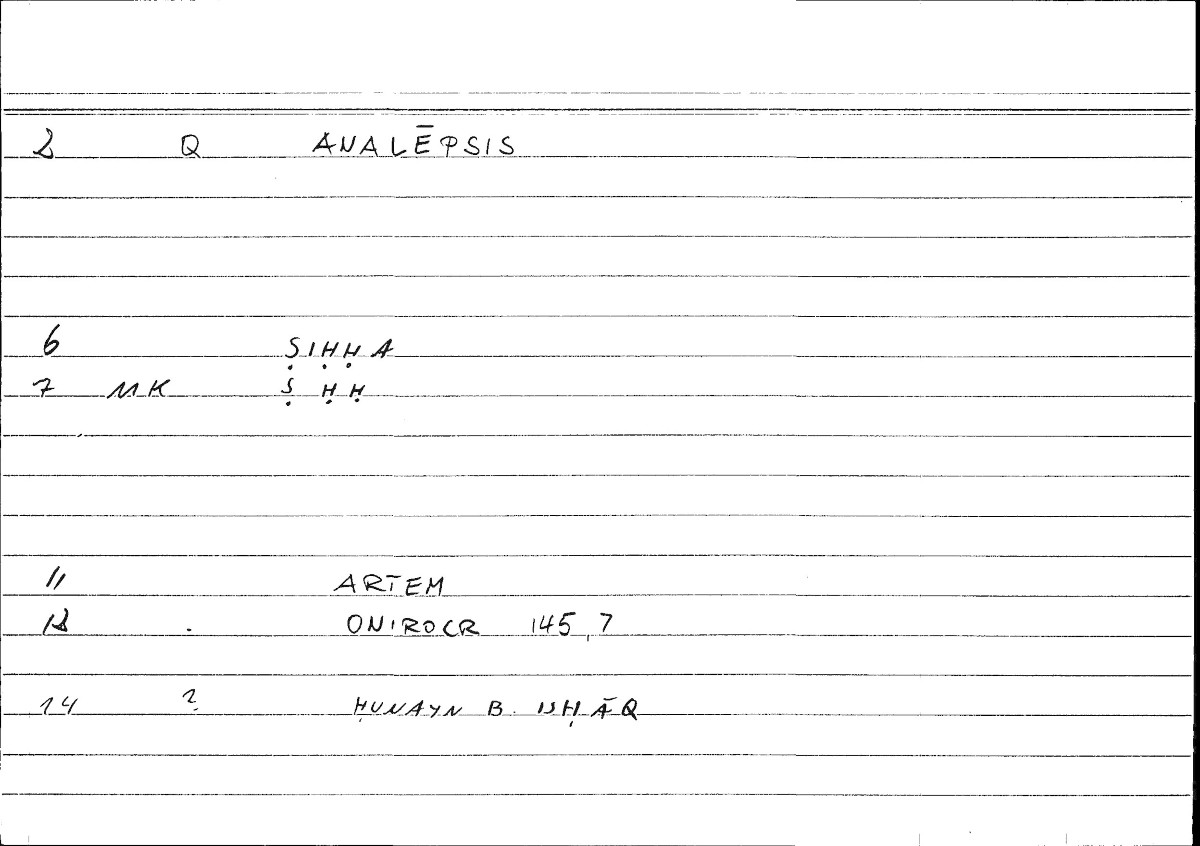 2 Q ANALĒPSIS
6 ṢIḤḤA
7 MK Ṣ Ḥ Ḥ
11 ARTEM
12 . ONIROCR 145,7
14 ? ḤUNAYN B. ISḤĀQ